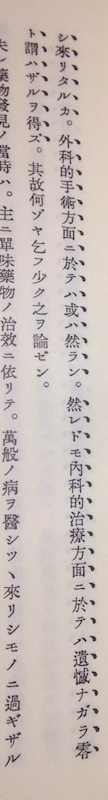 シ來リタルカ。外科的手術方面ニ於テハ或ハ然ラン。然レドモ內科的治療方面ニ於テハ遺憾ナガラ零
ト謂ハザルヲ得ズ。其故何ゾヤ乞フ少ク之ヲ論ゼン。
夫レ藥物發見ノ當時ハ。主ニ單味藥物ノ治效ニ依リテ。萬般ノ病ヲ醫シツヽ來リシモノニ過ギザル